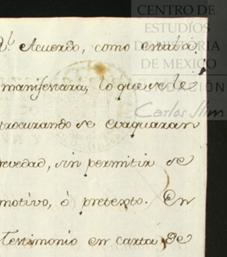 CENTRO DE
ESTUDIOS
DE HISTORIA
DE MEXICO
Carlos Slim
Acuerdo, como entaba
manifestara, lo que se le
procurando se evaquaran
brevedad, sin permitir se
motivo, ó pretexto. En
Testimonio en carta de